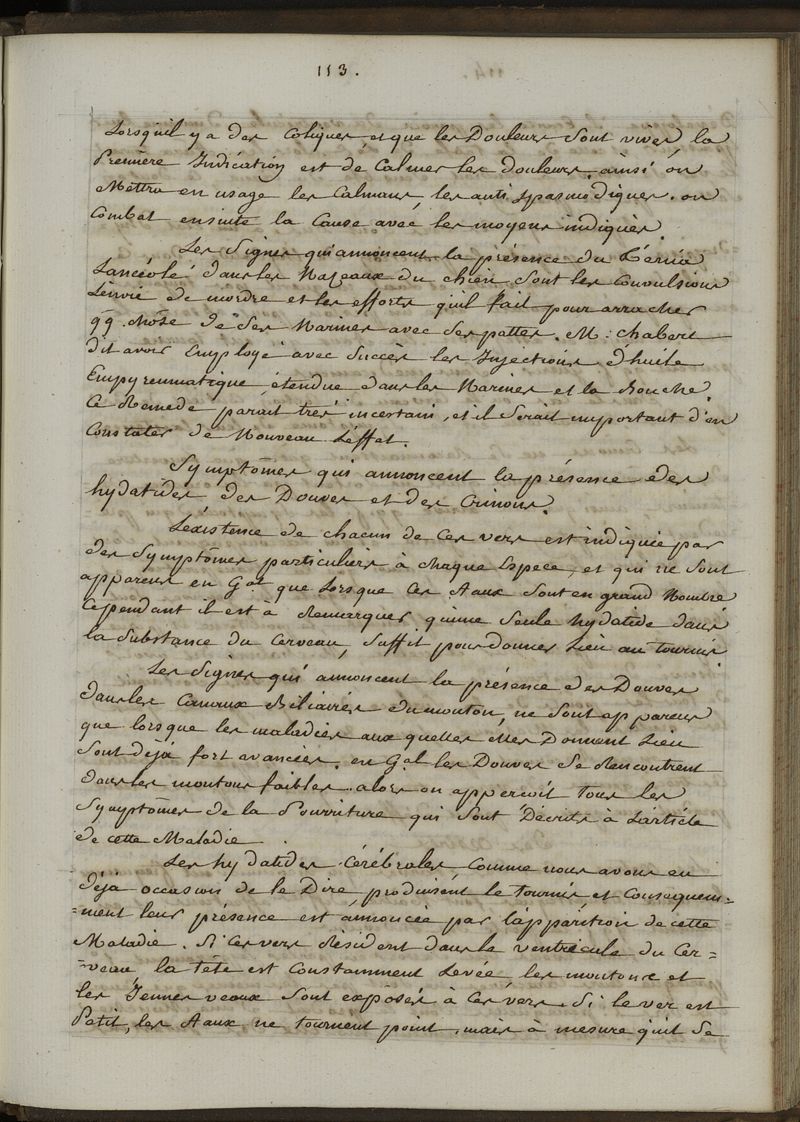 113.
Lorsqu'il y a des Coliques, et que les Douleurs sont vives, la
Première Indication est de Calmer les douleurs, ainsi on
Mettra en usage les Calmans, les anti spasmodiques. on
Combat ensuite la Cause avec les moyens indiqués.
Les Signes qui annoncent la présence du Tœnia
Lancéolé dans les Nazeaux du chien sont les Convulsions
L'envie de mordre et les efforts qu'il fait pour arracher
qq. chose de ses Narines avec ses pattes. M: chabert
dit avoir Employé avec Succès les Injections d'huile
Empyreumatique, étendue dans les Narines et la Bouche.
Ce Remede parait très incertain, et il serait important d'en
Constater de Nouveau L'effet.
Symptômes qui annoncent la présence des
hydatides des Douves et des Crinons.
L'existence de chacun de Ces vers est indiquée par
des Symptômes particuliers à chaque Espece, et qui ne sont
apparens en Gal que Lorsque Ces Aaux sont en grand Nombre
Cependant il est à Remarquer qu'une Seule hydatide dans
la Substance du Cerveau, Suffit pour donner Lieu au tournis.
Les Signes qui annoncent la présence des Douves
dans les Canaux Biliaires du mouton, ne sont apparens
que lorsque les maladies aux quelles elles Donnent Lieu
sont déjà fort avancées. en Gal les Douves se Rencontrent
dans les moutons faibles. alors on apperçoit tous les
Symptômes de la Pourriture qui sont Décrits à L'article
de cette Maladie.
Les hydatides Cérébrales, Comme nous avons eu
Déjà occasion de le Dire, produisent le tournis, et Conséquem=
=ment leur présence est annoncée par l'apparition de cette
Maladie. Si Ces vers Résident dans le ventricule du Cer=
=veau, la tête est Constamment Levée, les moutons et
les Jeunes veaux sont exposés à Ces vers. Si le ver est
Petit, les Aaux ne tournent point, mais à mesure qu'il se